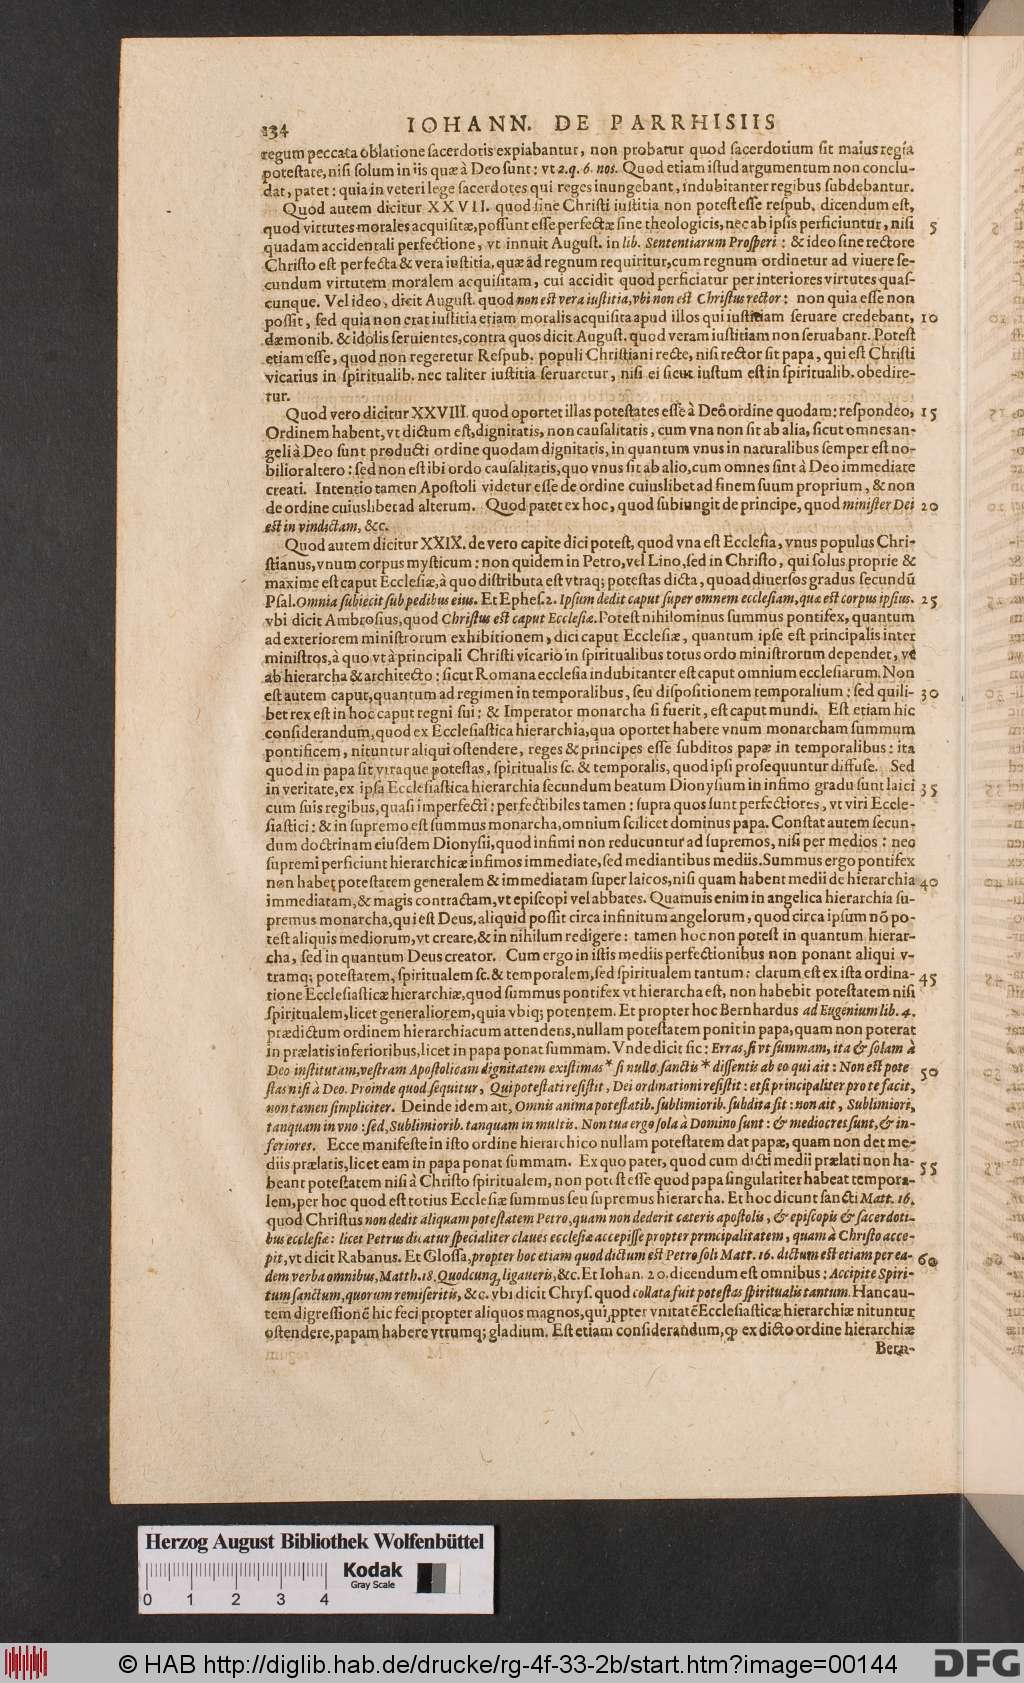 134 IOHANN. DE PARRHISIIS
regum peccata oblatione ſacerdotis expiabantur, non probatur quod ſacerdotium ſit maius regia
poteſtate, niſi ſolum in iis quæ à Deo ſunt: vt 2. q. 6. nos. Quod etiam iſtud argumentum non conclu-
dat, patet: quia in veteri lege ſacerdotes qui reges inungebant, indubitanter regibus ſubdebantur.
Quod autem dicitur XXVII. quod ſine Chriſti iuſtitia non poteſt eſſe reſpub. dicendum eſt,
quod virtutes morales acquiſitæ, poſſunt eſſe perfectæ ſine theologicis, nec ab ipſis perficiuntur, niſi 5
quadam accidentali perfectione, vt innuit Auguſt. in lib. Sententiarum Proſperi: & ideo ſine rectore
Chriſto eſt perfecta & vera iuſtitia, quæ ad regnum requiritur, cum regnum ordinetur ad viuere ſe-
cundum virtutem moralem acquiſitam, cui accidit quod perficiatur per interiores virtutes quaſ-
cunque. Vel ideo, dicit Auguſt. quod non eſt vera iuſtitia, vbi non eſt Chriſtus rector: non quia eſſe non
poſſit, ſed quia non erat iuſtitia etiam moralis acquiſita apud illos qui iuſtitiam ſeruare credebant, 10
dæmonib. & idolis ſeruientes, contra quos dicit Auguſt. quod veram iuſtitiam non ſeruabant. Poteſt
etiam eſſe, quod non regeretur Reſpub. populi Chriſtiani recte, niſi rector ſit papa, qui eſt Chriſti
vicarius in ſpiritualib. nec taliter iuſtitia ſeruaretur, niſi ei ſicut iuſtum eſt in ſpiritualib. obedire-
tur.
Quod vero dicitur XXVIII. quod oportet illas poteſtates eſſe à Deo ordine quodam: reſpondeo, 15
Ordinem habent, vt dictum eſt, dignitatis, non cauſalitatis, cum vna non ſit ab alia, ſicut omnes an-
geli à Deo ſunt producti ordine quodam dignitatis, in quantum vnus in naturalibus ſemper eſt no-
bilior altero: ſed non eſt ibi ordo cauſalitatis, quo vnus ſit ab alio, cum omnes ſint à Deo immediate
creati. Intentio tamen Apoſtoli videtur eſſe de ordine cuiuslibet ad finem ſuum proprium, & non
de ordine cuiuslibet ad alterum. Quod patet ex hoc, quod ſubiungit de principe, quod miniſter Dei 20
eſt in vindictam, &c.
Quod autem dicitur XXIX. de vero capite dici poteſt, quod vna eſt Eccleſia, vnus populus Chri-
ſtianus, vnum corpus myſticum: non quidem in Petro, vel Lino, ſed in Chriſto, qui ſolus proprie &
maxime eſt caput Eccleſiæ, à quo diſtributa eſt vtraq; poteſtas dicta, quoad diuerſos gradus ſecundū
Pſal. Omnia ſubiecit ſub pedibus eius. Et Epheſ. 2. Ipſum dedit caput ſuper omnem eccleſiam, quæ eſt corpus ipſius. 25
vbi dicit Ambroſius, quod Chriſtus eſt caput Eccleſiæ. Poteſt nihilominus ſummus pontifex, quantum
ad exteriorem miniſtrorum exhibitionem, dici caput Eccleſiæ, quantum ipſe eſt principalis inter
miniſtros, à quo vt à principali Chriſti vicario in ſpiritualibus totus ordo miniſtrorum dependet, vt
ab hierarcha & architecto: ſicut Romana eccleſia indubitanter eſt caput omnium eccleſiarum. Non
eſt autem caput, quantum ad regimen in temporalibus, ſeu diſpoſitionem temporalium: ſed quili- 30
bet rex eſt in hoc caput regni ſui: & Imperator monarcha ſi fuerit, eſt caput mundi. Eſt etiam hic
conſiderandum, quod ex Eccleſiaſtica hierarchia, qua oportet habere vnum monarcham ſummum
pontificem, nituntur aliqui oſtendere, reges & principes eſſe ſubditos papæ in temporalibus: ita
quod in papa ſit vtraque poteſtas, ſpiritualis ſc. & temporalis, quod ipſi proſequuntur diffuſe. Sed
in veritate, ex ipſa Eccleſiaſtica hierarchia ſecundum beatum Dionyſium in infimo gradu ſunt laici 35
cum ſuis regibus, quaſi imperfecti: perfectibiles tamen: ſupra quos ſunt perfectiores, vt viri Eccle-
ſiaſtici: & in ſupremo eſt ſummus monarcha, omnium ſcilicet dominus papa. Conſtat autem ſecun-
dum doctrinam eiuſdem Dionyſii, quod infimi non reducuntur ad ſupremos, niſi per medios: nec
ſupremi perficiunt hierarchicæ infimos immediate, ſed mediantibus mediis. Summus ergo pontifex
non habet poteſtatem generalem & immediatam ſuper laicos, niſi quam habent medii de hierarchia 40
immediatam, & magis contractam, vt epiſcopi vel abbates. Quamuis enim in angelica hierarchia ſu-
premus monarcha, qui eſt Deus, aliquid poſſit circa infinitum angelorum, quod circa ipſum nō po-
teſt aliquis mediorum, vt creare, & in nihilum redigere: tamen hoc non poteſt in quantum hierar-
cha, ſed in quantum Deus creator. Cum ergo in iſtis mediis perfectionibus non ponant aliqui v-
tramq; poteſtatem, ſpiritualem ſc. & temporalem, ſed ſpiritualem tantum: clarum eſt ex iſta ordina- 45
tione Eccleſiaſticæ hierarchiæ, quod ſummus pontifex vt hierarcha eſt, non habebit poteſtatem niſi
ſpiritualem, licet generaliorem, quia vbiq; potentem. Et propter hoc Bernhardus ad Eugenium lib. 4.
prædictum ordinem hierarchiacum attendens, nullam poteſtatem ponit in papa, quam non poterat
in prælatis inferioribus, licet in papa ponat ſummam. Vnde dicit ſic: Erras, ſi vt ſummam, ita & ſolam à
Deo inſtitutam, veſtram Apoſtolicam dignitatem exiſtimas * ſi nullo. ſanctis * diſſentis ab eo qui ait: Non eſt pote 50
ſtas niſi à Deo. Proinde quod ſequitur, Qui poteſtati reſiſtit, Dei ordinationi reſiſtit: etſi principaliter pro te facit,
non tamen ſimpliciter. Deinde idem ait, Omnis anima poteſtatib. ſublimiorib. ſubdita ſit: non ait, Sublimiori,
tanquam in vno: ſed, Sublimiorib. tanquam in multis. Non tua ergo ſola à Domino ſunt: & mediocres ſunt, & in-
feriores. Ecce manifeſte in iſto ordine hierarchico nullam poteſtatem dat papæ, quam non det me-
diis prælatis, licet eam in papa ponat ſummam. Ex quo patet, quod cum dicti medii prælati non ha- 55
beant poteſtatem niſi à Chriſto ſpiritualem, non poteſt eſſe quod papa ſingulariter habeat tempora-
lem, per hoc quod eſt totius Eccleſiæ ſummus ſeu ſupremus hierarcha. Et hoc dicunt ſancti Matt. 16.
quod Chriſtus non dedit aliquam poteſtatem Petro, quam non dederit cæteris apoſtolis, & epiſcopis & ſacerdoti-
bus eccleſiæ: licet Petrus dicatur ſpecialiter claues eccleſiæ accepiſſe propter principalitatem, quam à Chriſto acce-
pit, vt dicit Rabanus. Et Gloſſa, propter hoc etiam quod dictum eſt Petro ſoli Matt. 16. dictum eſt etiam per ea- 60
dem verba omnibus, Matth. 18. Quodcunq, ligaueris, &c. Et Iohan. 20. dicendum eſt omnibus: Accipite Spiri-
tum ſanctum, quorum remiſeritis, &c. vbi dicit Chryſ. quod collata fuit poteſtas ſpiritualis tantum. Hanc au-
tem digreſſionē hic feci propter aliquos magnos, qui ꝓpter vnitatē Eccleſiaſticæ hierarchiæ nituntur
oſtendere, papam habere vtrumq; gladium. Eſt etiam conſiderandum, ꝙ ex dicto ordine hierarchiæ
Bern-
Herzog August Bibliothek Wolfenbüttel
Kodak
Gray Scale
0 1 2 3 4
© HAB http://diglib.hab.de/drucke/rg-4f-33-2b/start.htm?image=00144
DFG